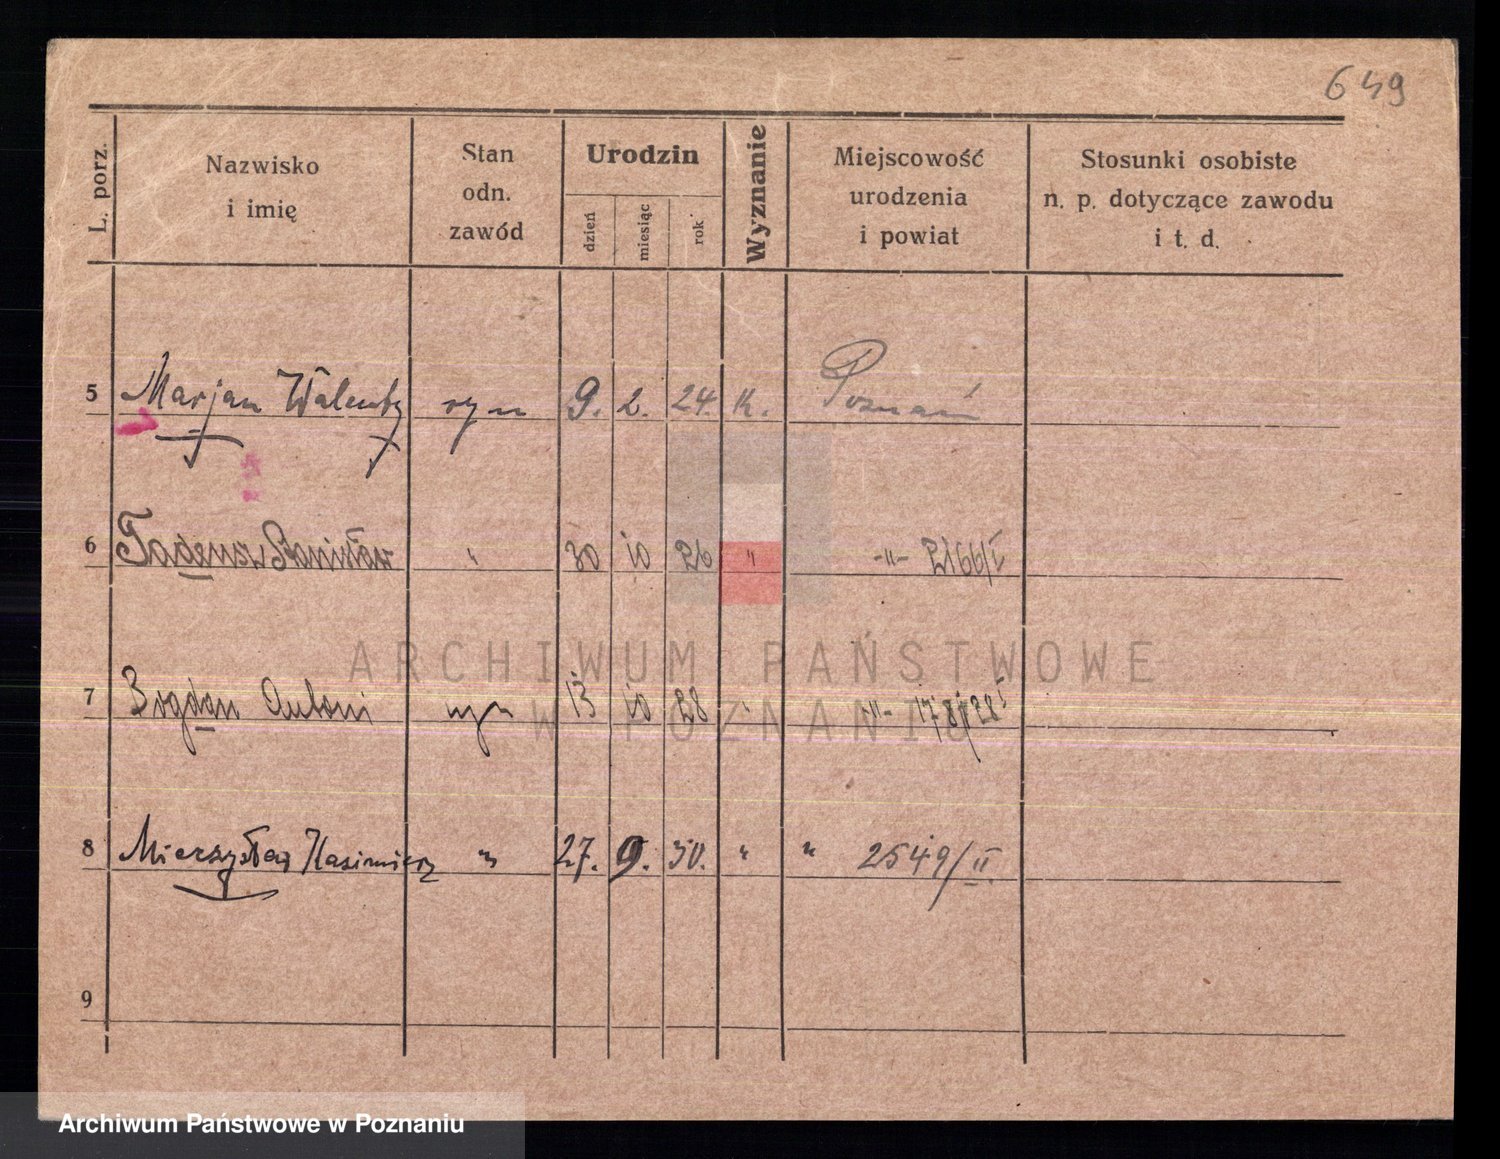 649
L. porz.
Nazwisko
i imię
Stan
odn.
zawód
Urodzin
dzień
miesiąc
rok
Wyznanie
Miejscowość
urodzenia
i powiat
Stosunki osobiste
n. p. dotyczące zawodu
i t. d.
5 Marjan Walenty syn 9. 2. 24. K. Poznań
6 Tadeusz Stanisław " 30 10 26 " -"- 2166/I
7 Bogdan Antoni syn 13 10 28 " -"-
8 Mieczysław Kasimierz " 27. 9. 30. " " 2549/II.
9
ARCHIWUM PAŃSTWOWE
W POZNANIU
Archiwum Państwowe w Poznaniu